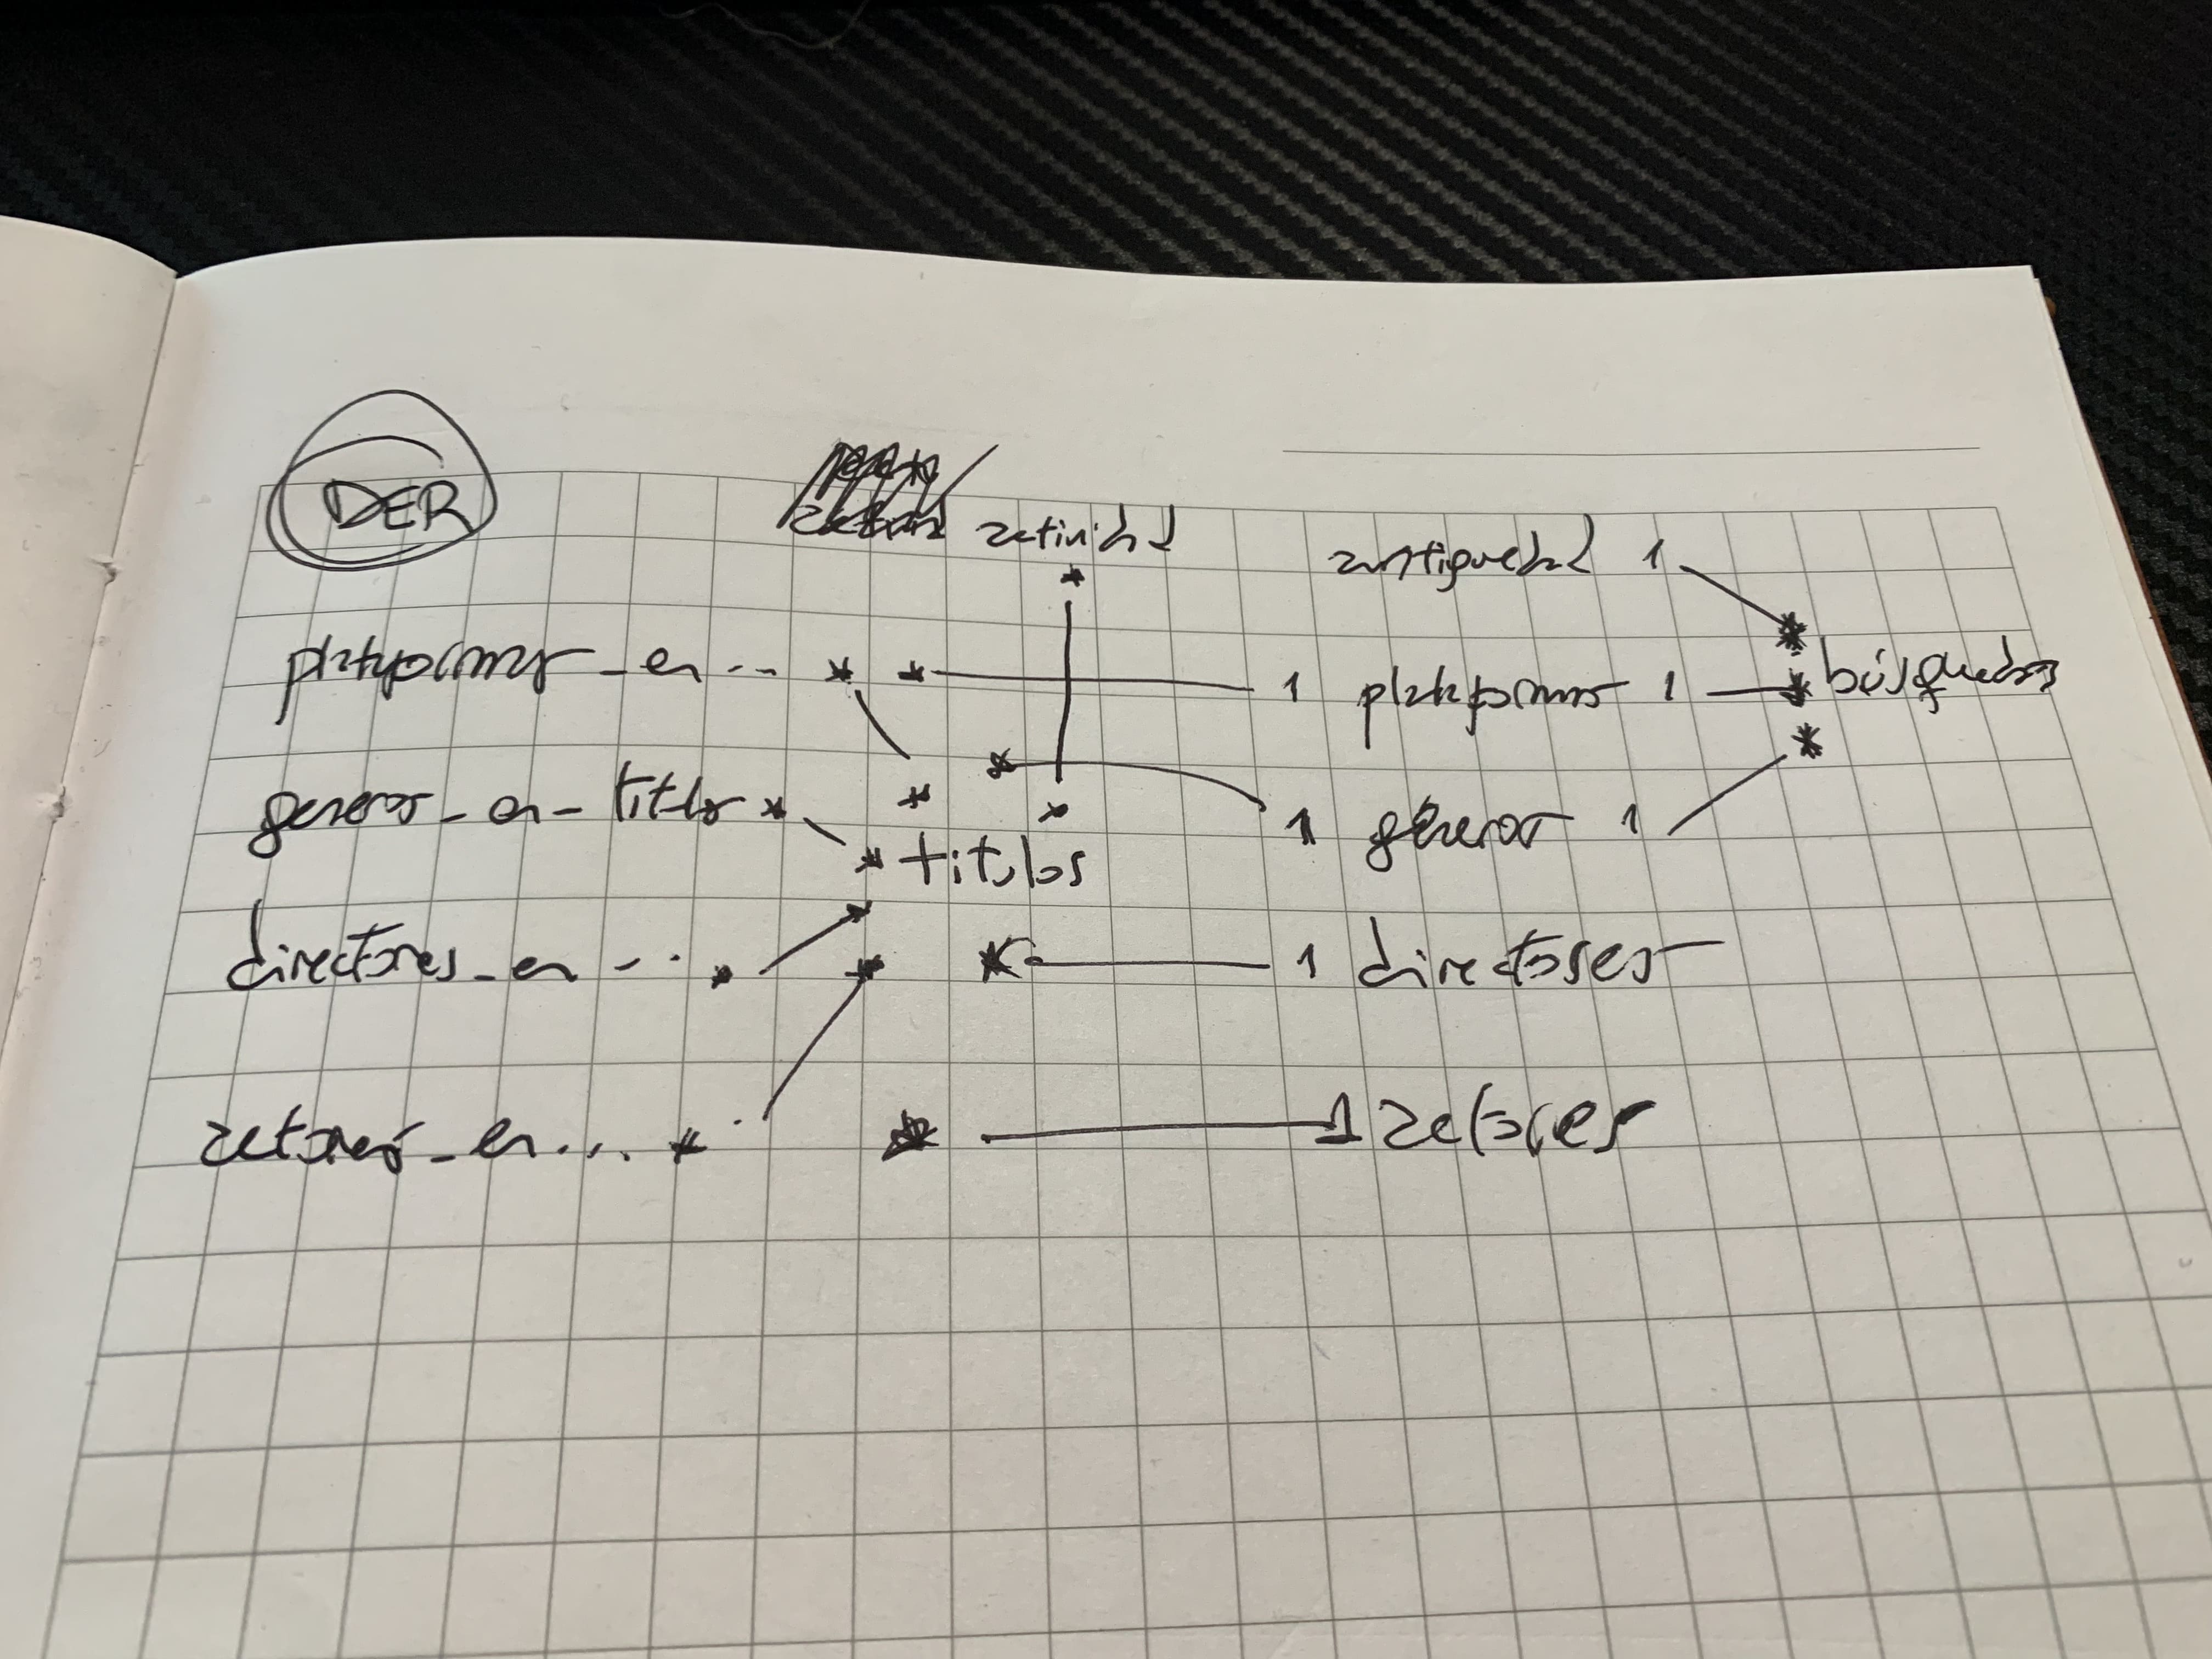 DER
actividad
antiguedad 1
plataformas_en ... * * 1 plataformas 1 * búsquedas
generos_en_titlos * * * * 1 géneros 1 *
* titulos
directores_en ... * * * * 1 directores
actores_en ... * * 1 actores